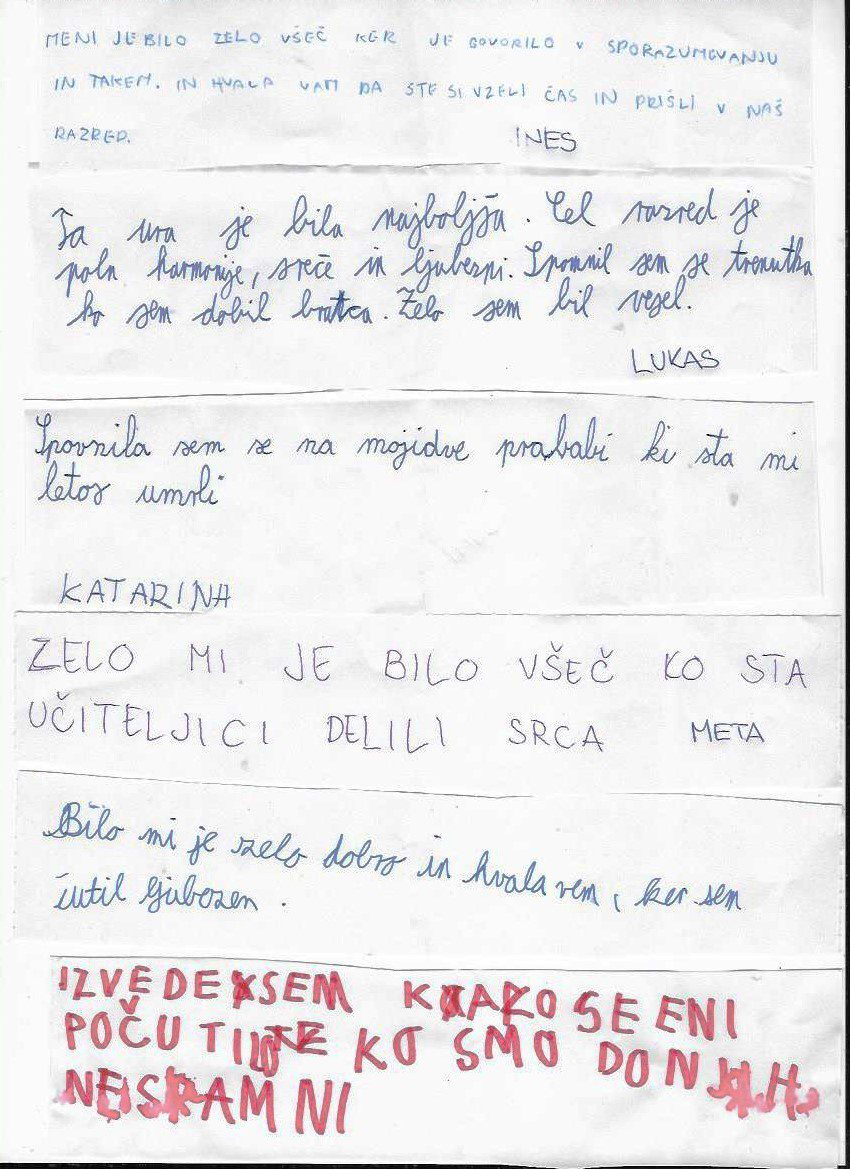 MENI JE BILO ZELO VŠEČ KER JE GOVORILO V SPORAZUMEVANJU
IN TAKEM. IN HVALA VAM DA STE SI VZELI ČAS IN PRIŠLI V NAŠ
RAZRED. INES
Ta ura je bila najboljša. Cel razred je
poln harmonije, sreče in ljubezni. Spomnil sem se trenutka
ko sem dobil bratca. Zelo sem bil vesel.
LUKAS
Spovnila sem se na mojidve prababi ki sta mi
letos umrli
KATARINA
ZELO MI JE BILO VŠEČ KO STA
UČITELJICI DELILI SRCA META
Bilo mi je zelo dobro in hvala vem, ker sem
čutil ljubezen.
IZVEDE SEM KAKO SE ENI
POČUTIJO KO SMO DO NJIH
NESRAMNI